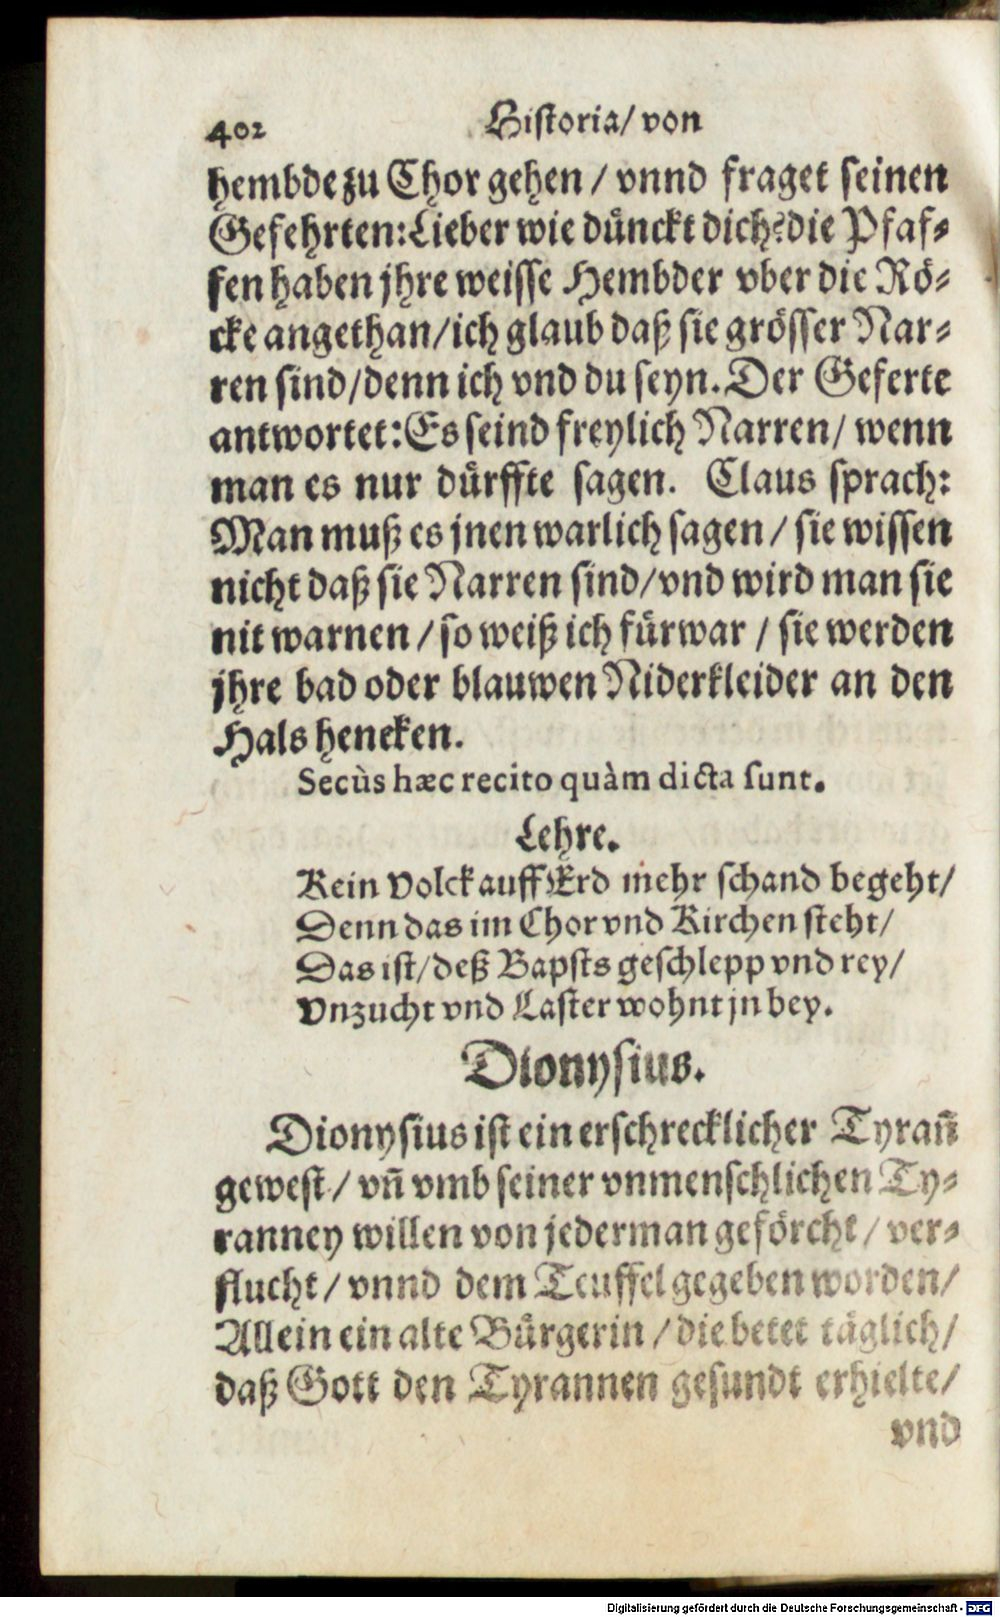 402 Historia/ von
hembde zu Chor gehen / vnnd fraget seinen
Gefehrten: Lieber wie dünckt dich? die Pfaf-
fen haben jhre weisse Hembder vber die Rö-
cke angethan/ ich glaub daß sie grösser Nar-
ren sind/ denn ich vnd du seyn. Der Geferte
antwortet: Es seind freylich Narren/ wenn
man es nur dürffte sagen. Claus sprach:
Man muß es jnen warlich sagen / sie wissen
nicht daß sie Narren sind/ vnd wird man sie
nit warnen / so weiß ich fürwar / sie werden
jhre bad oder blauwen Niderkleider an den
Hals hencken.
Secùs hæc recito quàm dicta sunt.
Lehre.
Kein Volck auff Erd mehr schand begeht/
Denn das im Chor vnd Kirchen steht/
Das ist/ deß Bapsts geschlepp vnd rey/
Vnzucht vnd Laster wohnt jn bey.
Dionysius.
Dionysius ist ein erschrecklicher Tyrañ
gewest / vñ vmb seiner vnmenschlichen Ty-
ranney willen von jederman geförcht / ver-
flucht / vnnd dem Teuffel gegeben worden/
Allein ein alte Bürgerin / die betet täglich/
daß Gott den Tyrannen gesundt erhielte/
vnd
Digitalisierung gefördert durch die Deutsche Forschungsgemeinschaft - DFG